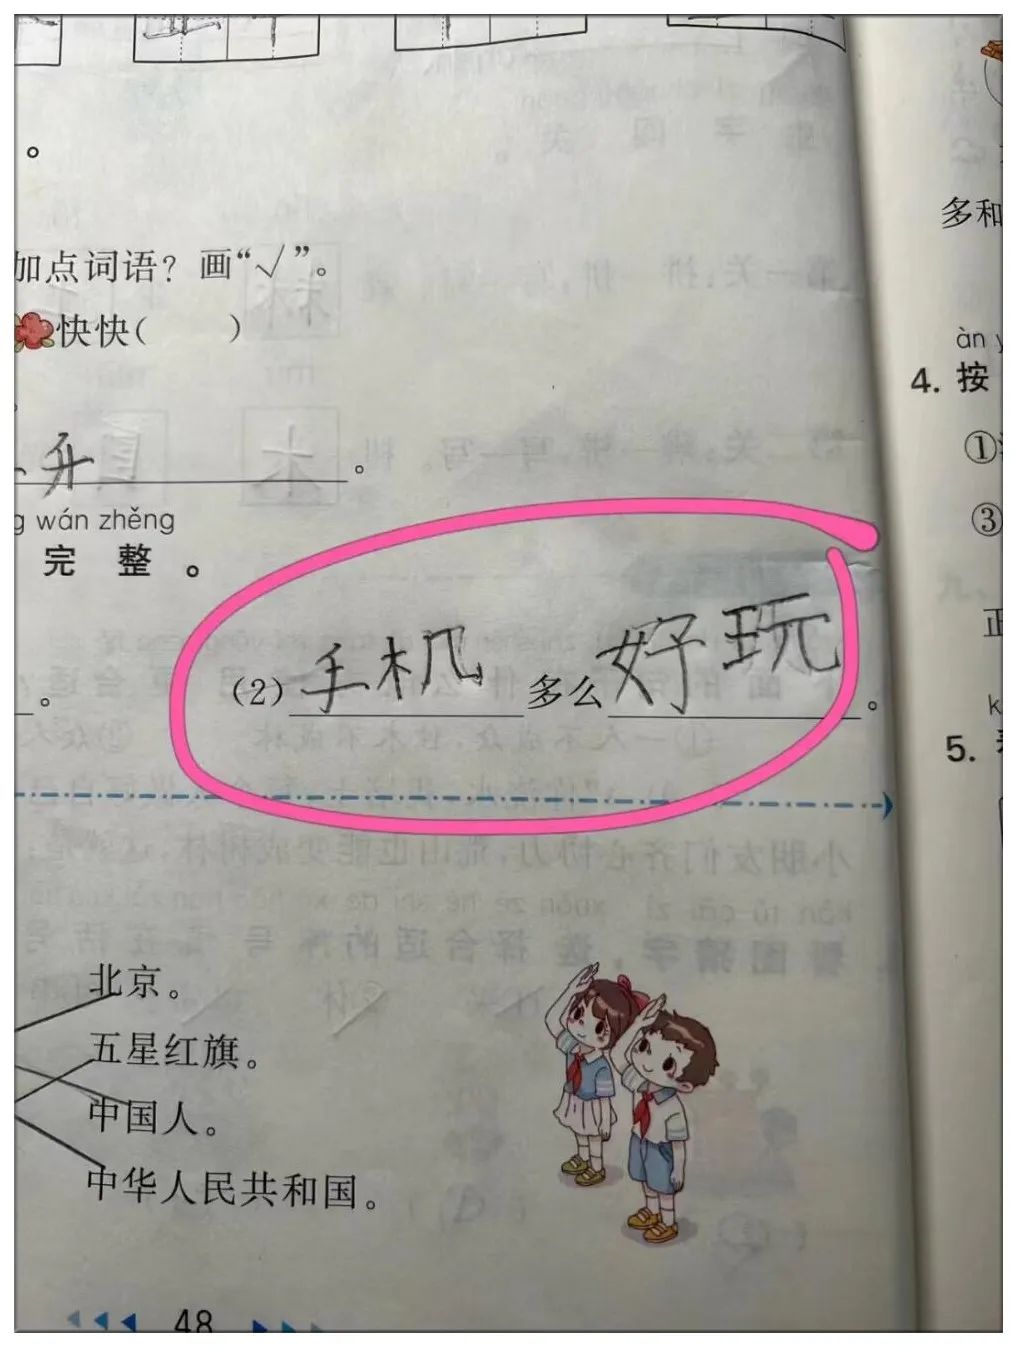 。
加点词语？画“√”。
快快(      )
升。
g wán zhěng
完 整 。
。 (2)手机多么好玩。
北京。
五星红旗。
中国人。
中华人民共和国。
48
多和
àn y
4. 按
①
③
正
k
5.